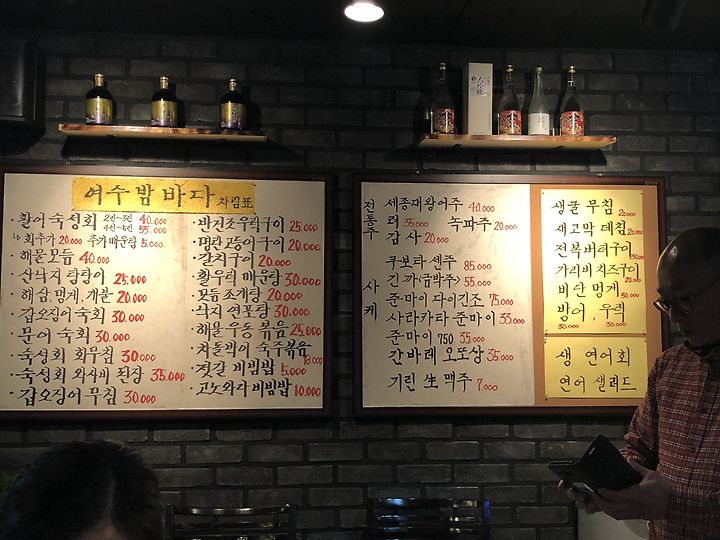 여수 밤 바다 차림표
·활어 숙성회 2인~3인 40.000
4인~5인 55.000
회추가 20.000 추가매운탕 5.000
·해물모듬 40.000
·산낙지 탕탕이 25.000
·해삼, 멍게, 개불 20.000
·갑오징어 숙회 30.000
·문어 숙회 30.000
·숙성회 회무침 30.000
·숙성회 와사비 된장 35.000
·갑오징어 무침 30.000
·반건조 우럭구이 25.000
·명란 고등어구이 20.000
·갈치구이 20.000
·활우럭 매운탕 30.000
·모듬 조개탕 20.000
·낙지 연포탕 30.000
·해물 우동 볶음 25.000
·차돌박이 숙주볶음 18.000
·젓갈 비빔밥 5.000
·고노와다 비빔밥 10.000
전통주
세종대왕어주 40.000
려 35.000 녹파주 20.000
감사 20.000
사케
쿠보타 센쥬 85.000
긴까(금박주) 55.000
준마이 다이긴조 75.000
사라카타 준마이 33.000
준마이 750 35.000
간바레 오또상 35.000
기린 生 맥주 7.000
생굴 무침 20.000
새고막 데침 20.000
전복버터구이 30.000
가리비치즈구이 20.000
비산 멍게 20.000
방어, 우럭
30.000 30.000
생 연어회
연어 샐러드